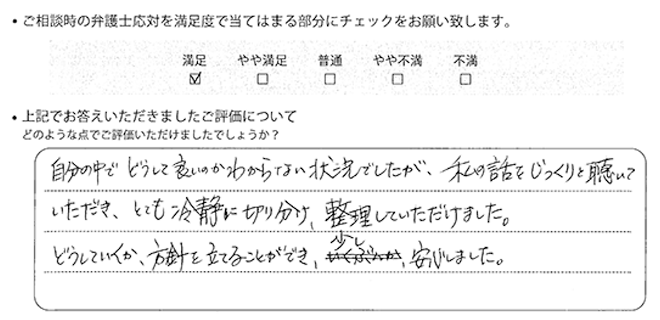 ・ご相談時の弁護士応対を満足度で当てはまる部分にチェックをお願い致します。
満足 やや満足 普通 やや不満 不満
☑ □ □ □ □
・上記でお答えいただきましたご評価について
どのような点でご評価いただけましたでしょうか?
自分の中でどうして良いのかわからない状況でしたが、私の話をじっくりと聴いて
いただき、とても冷静に切り分け、整理していただけました。
どうしていくか、方針を立てることができ、少し、安心しました。